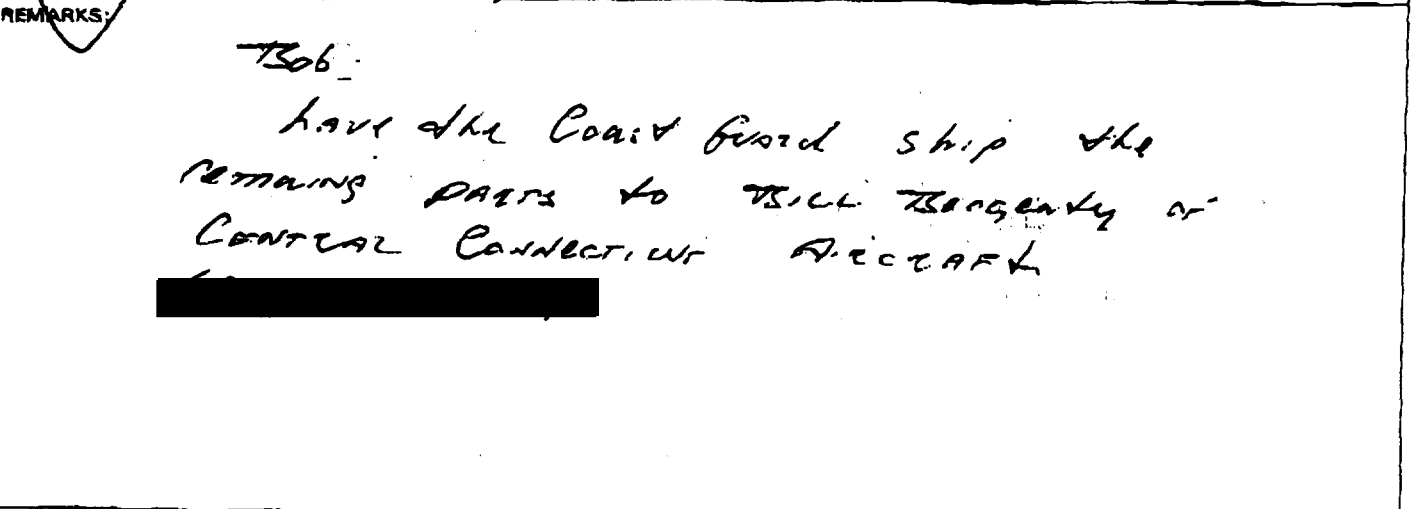 REMARKS:
Bob:
have the Coast Guard ship the
remaining parts to Bill at
Central Connecticut Aircraft